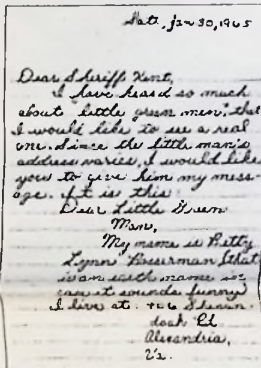 Sat., Jan 30, 1965
Dear Sheriff Kent,
I have heard so much
about "little green men," that
I would like to see a real
one. Since the little man's
address varies, I would like
you to give him my mess-
age. It is this:
Dear Little Green
Man,
My name is Betty
Lynn (that
is an earth name in
case it sounds funny
I live at
Rd
Alexandria,
Va.